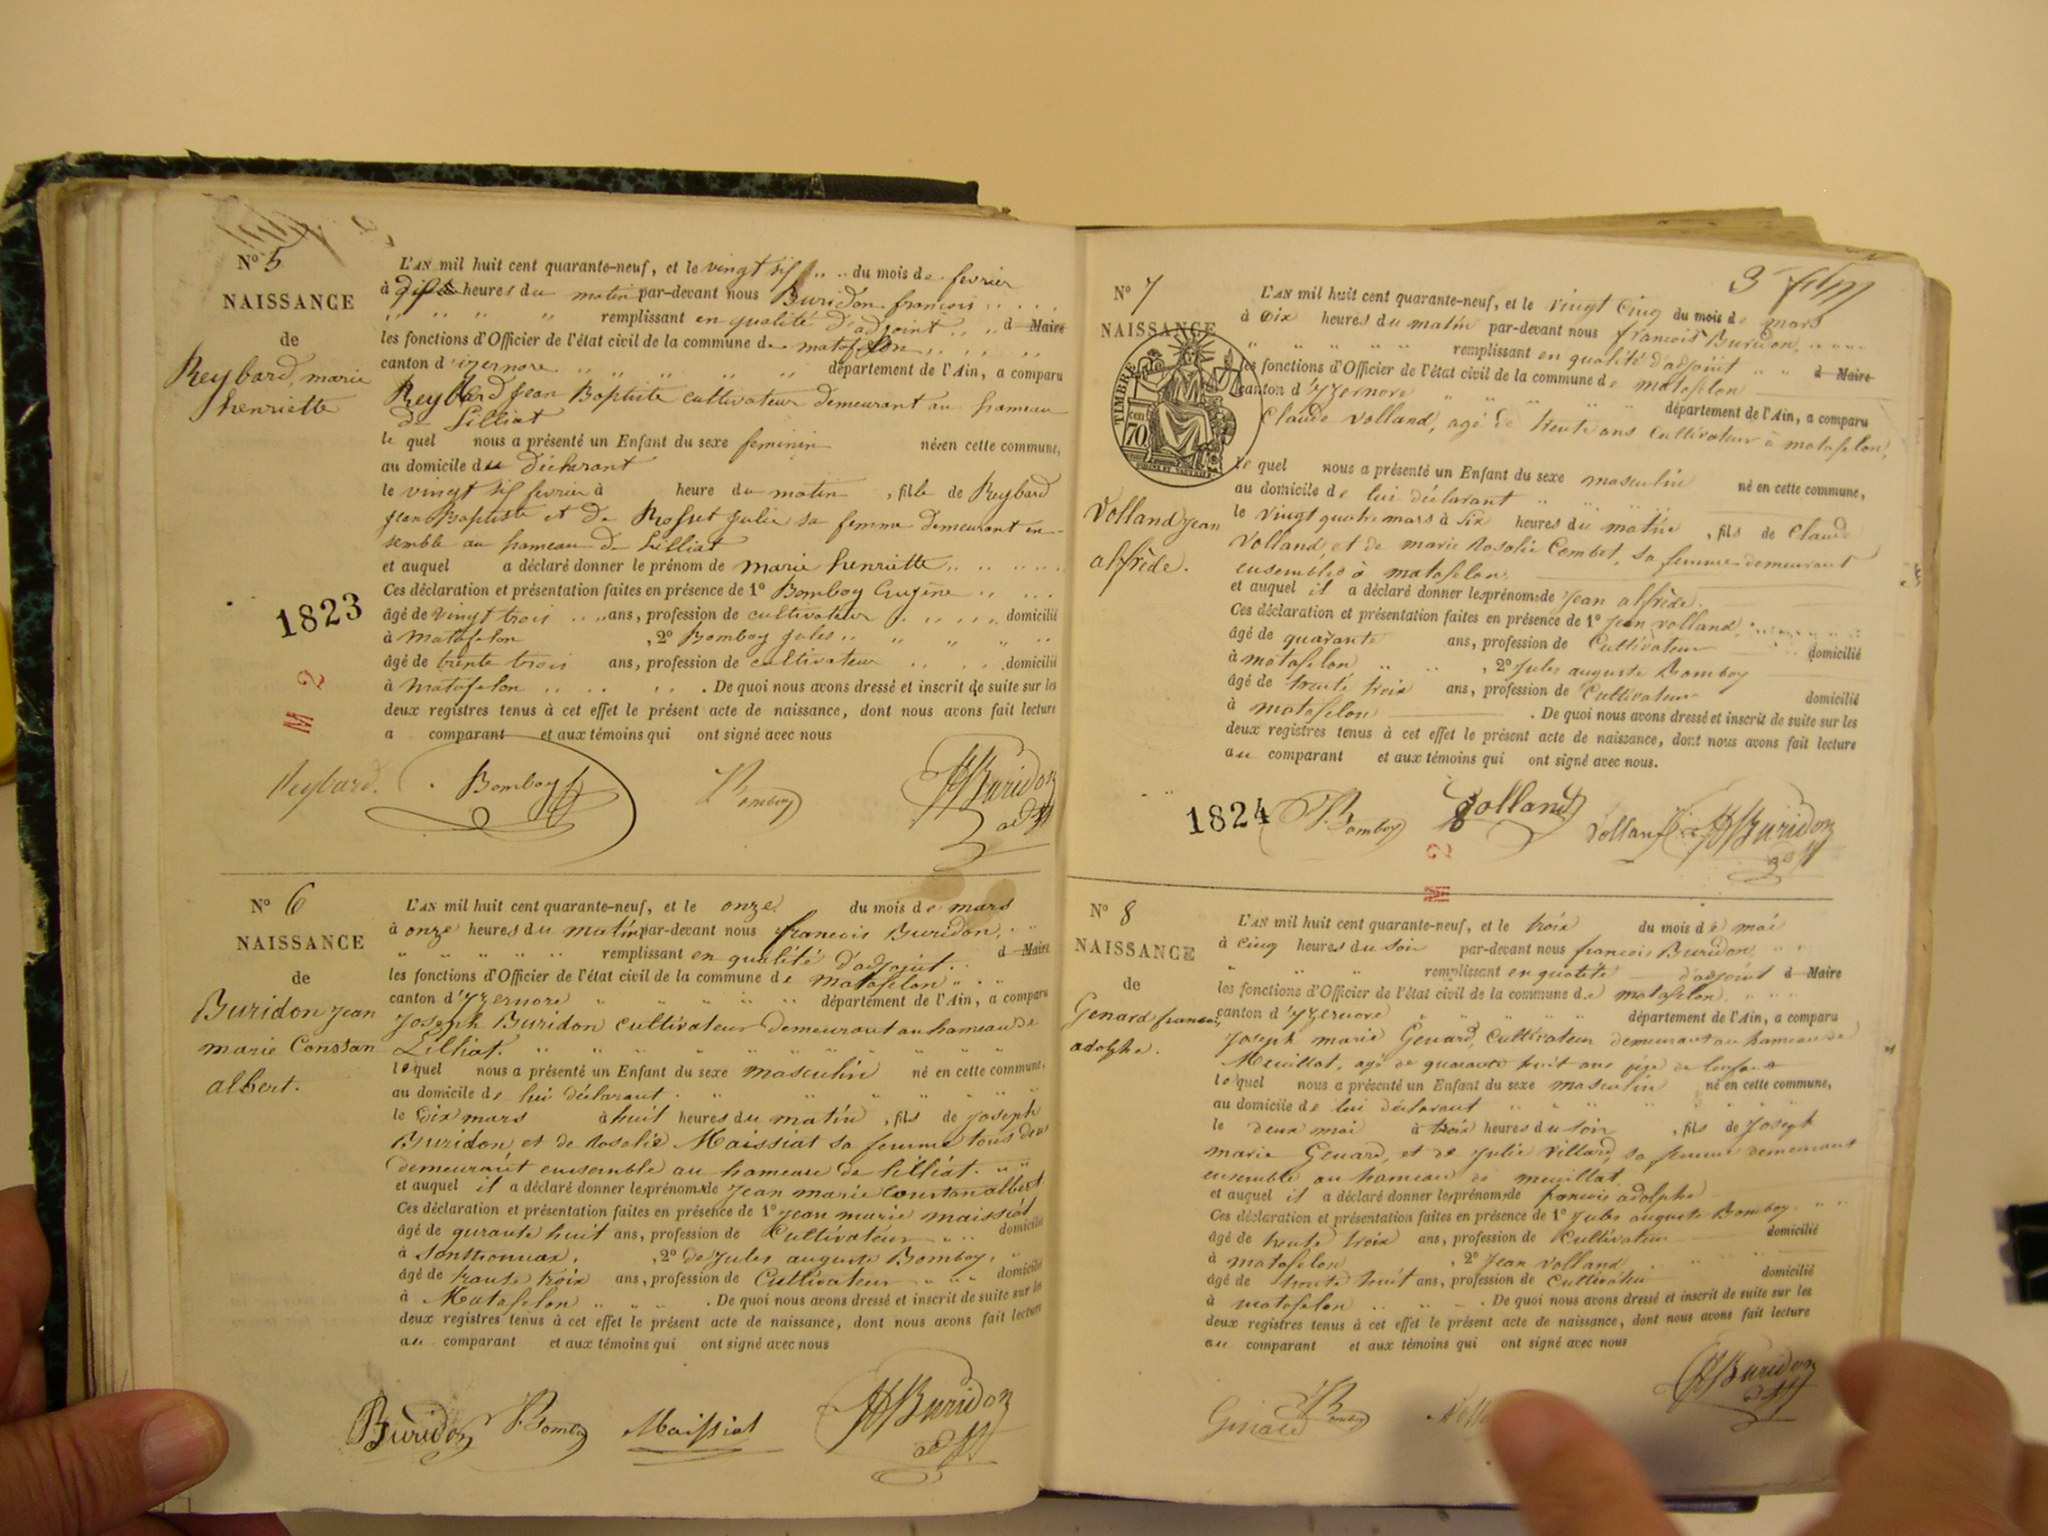 N° 5
NAISSANCE
de
Reybard, marie
henriette
L'AN mil huit cent quarante-neuf, et le vingt six du mois de fevrier
à heures du matin par-devant nous Buridon francois
remplissant en qualité d'adjoint d Maire
les fonctions d'Officier de l'état civil de la commune de matafelon
canton d'izernore département de l'Ain, a comparu
Reybard Jean Baptiste cultivateur demeurant au hameau
de Lilliat
le quel nous a présenté un Enfant du sexe feminin né en cette commune,
au domicile du déclarant
le vingt six fevrier à heure du matin, fille de Reybard
Jean Baptiste et de Rosset Julie sa femme demeurant en-
semble au hameau de Lilliat
et auquel a déclaré donner le prénom de marie henriette
Ces déclaration et présentation faites en présence de 1° Bomboy Eugène
âgé de vingt trois ans, profession de cultivateur domicilié
à Matafelon, 2° Bomboy jules
âgé de trente trois ans, profession de cultivateur domicilié
à Matafelon. De quoi nous avons dressé et inscrit de suite sur les
deux registres tenus à cet effet le présent acte de naissance, dont nous avons fait lecture
a comparant et aux témoins qui ont signé avec nous
1823
M 2
Reybard Bomboy Bomboy Buridon adj
N° 6
NAISSANCE
de
Buridon Jean
marie Constan
albert.
L'AN mil huit cent quarante-neuf, et le onze du mois de mars
à onze heures du matin par-devant nous francois Buridon,
remplissant en qualité d'adjoint d Maire
les fonctions d'Officier de l'état civil de la commune de matafelon
canton d'Yzernore département de l'Ain, a comparu
Joseph Buridon cultivateur demeurant au hameau de
Lilliat.
lequel nous a présenté un Enfant du sexe masculin né en cette commune,
au domicile de lui déclarant
le dix mars à huit heures du matin, fils de Joseph
Buridon et de Rosalie Maissiat sa femme tous deux
demeurant ensemble au hameau de lilliat.
et auquel il a déclaré donner les prénoms de Jean marie Constan albert
Ces déclaration et présentation faites en présence de 1° Jean marie maissiat
âgé de quarante huit ans, profession de Cultivateur domicilié
à Sonthonnax, 2° de Jules auguste Bomboy,
âgé de trante troix ans, profession de Cultivateur domicilié
à Matafelon. De quoi nous avons dressé et inscrit de suite sur les
deux registres tenus à cet effet le présent acte de naissance, dont nous avons fait lecture
au comparant et aux témoins qui ont signé avec nous
Buridon Bomboy Maissiat Buridon adj
3
N° 7
NAISSANCE
TIMBRE
cen
70
Volland Jean
alfrède.
L'AN mil huit cent quarante-neuf, et le vingt cinq du mois de mars
à dix heures du matin par-devant nous francois Buridon,
remplissant en qualité d'adjoint d Maire
les fonctions d'Officier de l'état civil de la commune de matafelon
canton d'Yzernore département de l'Ain, a comparu
Claude Volland, agé de trente ans Cultivateur à matafelon,
le quel nous a présenté un Enfant du sexe masculin né en cette commune,
au domicile de lui déclarant
le vingt quatre mars à six heures du matin, fils de Claude
Volland, et de marie Rosalie Combet, sa femme demeurant
ensembles à matafelon,
et auquel il a déclaré donner les prénoms de Jean alfrède.
Ces déclaration et présentation faites en présence de 1° Jean Volland,
âgé de quarante ans, profession de Cultivateur domicilié
à matafelon, 2° Jules auguste Bomboy
âgé de trente troix ans, profession de Cultivateur domicilié
à matafelon. De quoi nous avons dressé et inscrit de suite sur les
deux registres tenus à cet effet le présent acte de naissance, dont nous avons fait lecture
au comparant et aux témoins qui ont signé avec nous.
1824
Bomboy Volland Volland Buridon adj
M 2
N° 8
NAISSANCE
de
Genard francois
adolphe.
L'AN mil huit cent quarante-neuf, et le troix du mois de mai
à cinq heures du soir par-devant nous francois Buridon,
remplissant en qualité d'adjoint d Maire
les fonctions d'Officier de l'état civil de la commune de matafelon,
canton d'Yzernore département de l'Ain, a comparu
Joseph marie Genard, Cultivateur demeurant au hameau de
Meuillat, agé de quarante huit ans père de lenfant
lequel nous a présenté un Enfant du sexe masculin né en cette commune,
au domicile de lui déclarant
le deux mai à troix heures du soir, fils de Joseph
marie Genard, et de Julie Villard, sa femme demeurant
ensemble au hameau de meuillat,
et auquel il a déclaré donner les prénoms de francois adolphe
Ces déclaration et présentation faites en présence de 1° Jules auguste Bomboy,
âgé de trente troix ans, profession de Cultivateur domicilié
à matafelon, 2° Jean Volland
âgé de trente huit ans, profession de Cultivateur domicilié
à matafelon. De quoi nous avons dressé et inscrit de suite sur les
deux registres tenus à cet effet le présent acte de naissance, dont nous avons fait lecture
au comparant et aux témoins qui ont signé avec nous
Genard Bomboy Buridon adj